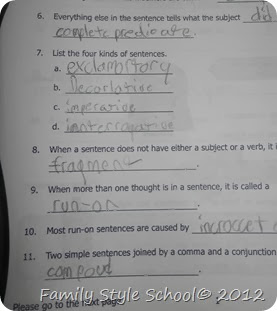 6. Everything else in the sentence tells what the subject did
complete predicate.
7. List the four kinds of sentences.
a. exclamitory
b. Decorlative
c. imperative
d. innterrogative
8. When a sentence does not have either a subject or a verb, it i
fragment.
9. When more than one thought is in a sentence, it is called a
run-on.
10. Most run-on sentences are caused by incroccet
11. Two simple sentences joined by a comma and a conjunction
compout
Please go to the next page
Family Style School© 2012